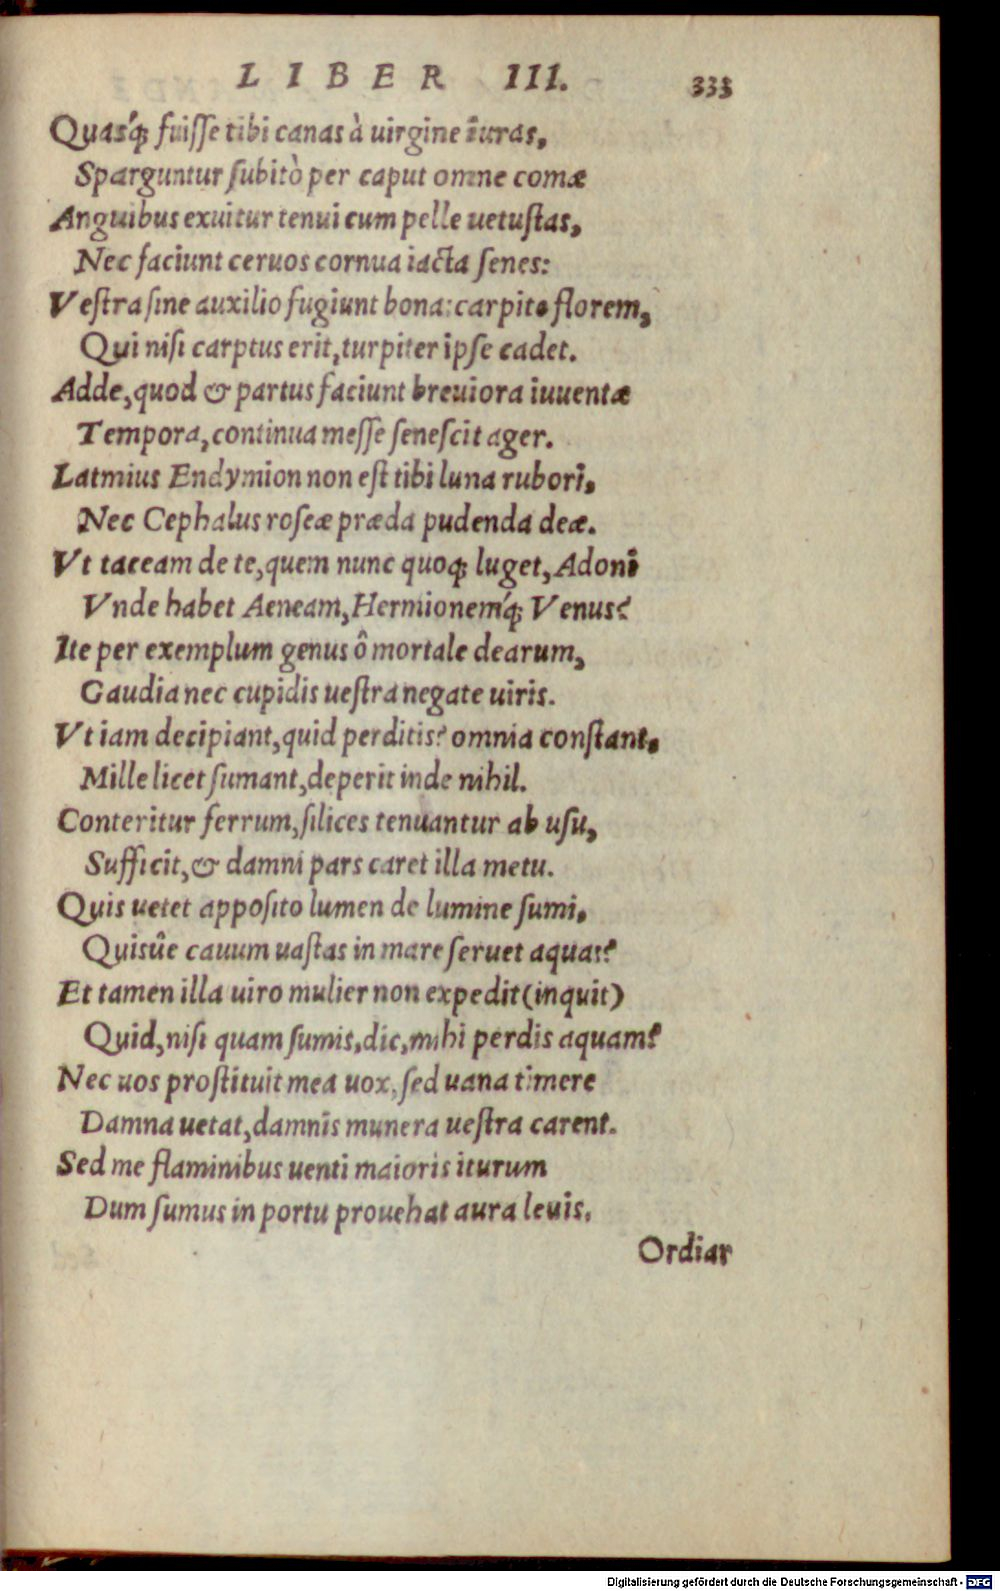 LIBER III. 333
Quasq́; fuiſſe tibi canas à uirgine iuras,
Sparguntur ſubitò per caput omne comæ
Anguibus exuitur tenui cum pelle uetuſtas,
Nec faciunt ceruos cornua iacta ſenes:
Veſtra ſine auxilio fugiunt bona: carpite florem,
Qui niſi carptus erit, turpiter ipſe cadet.
Adde, quod & partus faciunt breuiora iuuentæ
Tempora, continua meſſe ſeneſcit ager.
Latmius Endymion non eſt tibi luna rubori,
Nec Cephalus roſeæ præda pudenda deæ.
Vt taceam de te, quem nunc quoq; luget, Adoni
Vnde habet Aeneam, Hermionemq́; Venus?
Ite per exemplum genus ô mortale dearum,
Gaudia nec cupidis ueſtra negate uiris.
Vt iam decipiant, quid perditis? omnia conſtant,
Mille licet ſumant, deperit inde nihil.
Conteritur ferrum, ſilices tenuantur ab uſu,
Sufficit, & damni pars caret illa metu.
Quis uetet appoſito lumen de lumine ſumi,
Quisûe cauum uaſtas in mare ſeruet aquas?
Et tamen illa uiro mulier non expedit (inquit)
Quid, niſi quam ſumis, dic, mihi perdis aquam?
Nec uos proſtituit mea uox, ſed uana timere
Damna uetat, damnis munera ueſtra carent.
Sed me flaminibus uenti maioris iturum
Dum ſumus in portu prouehat aura leuis.
Ordiar
Digitalisierung gefördert durch die Deutsche Forschungsgemeinschaft - DFG